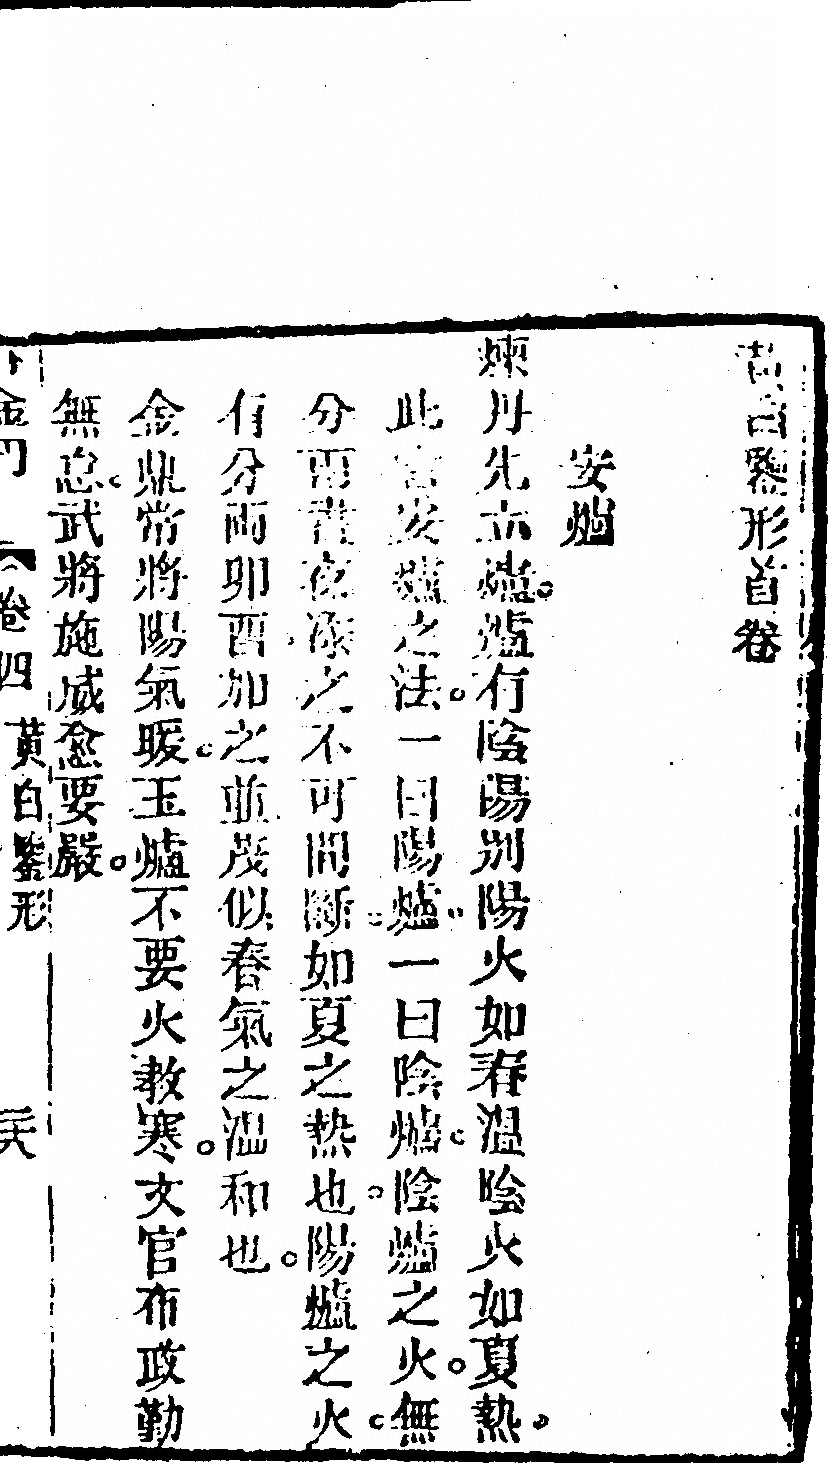 黃白鑒形首卷
安爐
煉丹先立爐爐有陰陽別陽火如春溫陰火如夏熱
此言安爐之法一曰陽爐一曰陰爐陰爐之火無
分兩晝夜添之不可間斷如夏之熱也陽爐之火
有分兩卯酉加之並茂似春氣之溫和也
金鼎常將陽氣暖玉爐不要火教寒文官布政勤
無怠武將施威愈要嚴
卷四 黃白鑒形